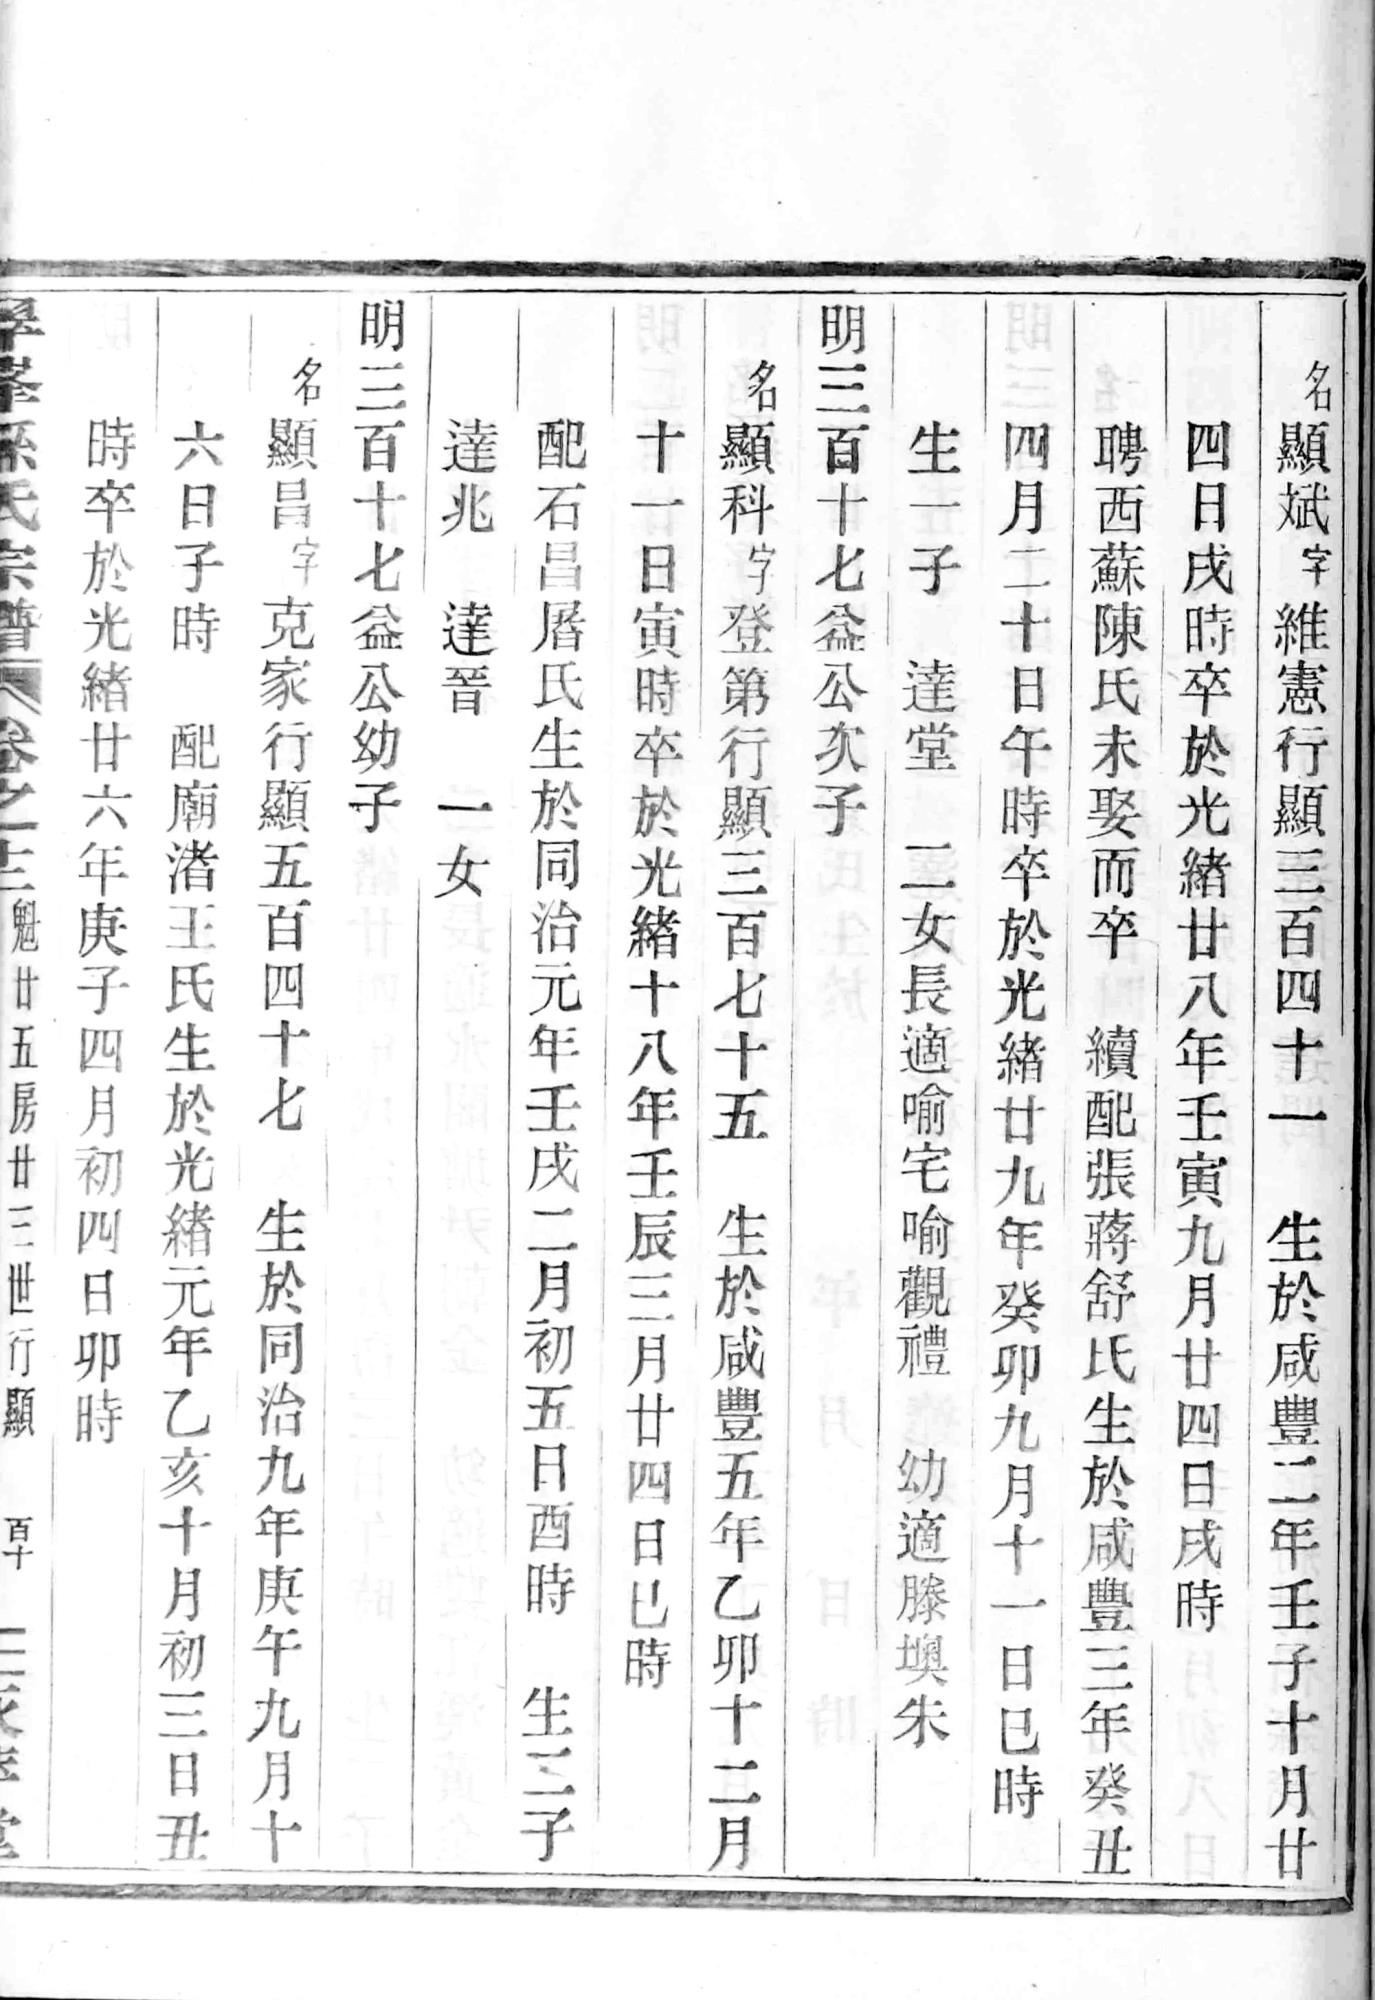 名顯斌字維憲行顯三百四十一　生於咸豐二年壬子十月廿
四日戌時卒於光緒廿八年壬寅九月廿四日戌時
聘西蘇陳氏未娶而卒　續配張蔣舒氏生於咸豐三年癸丑
四月二十日午時卒於光緒廿九年癸卯九月十一日巳時
生一子　達堂　二女長適喻宅喻觀禮　幼適滕墺朱
明三百十七益公次子
名顯科字登第行顯三百七十五　生於咸豐五年乙卯十二月
十一日寅時卒於光緒十八年壬辰三月廿四日巳時
配石昌屠氏生於同治元年壬戌二月初五日酉時　生二子
達兆　達晉　一女
明三百十七益公幼子
名顯昌字克家行顯五百四十七　生於同治九年庚午九月十
六日子時　配廟渚王氏生於光緒元年乙亥十月初三日丑
時卒於光緒廿六年庚子四月初四日卯時
孫氏宗譜　卷之十三　魁廿五房廿三世行顯　百十　堂